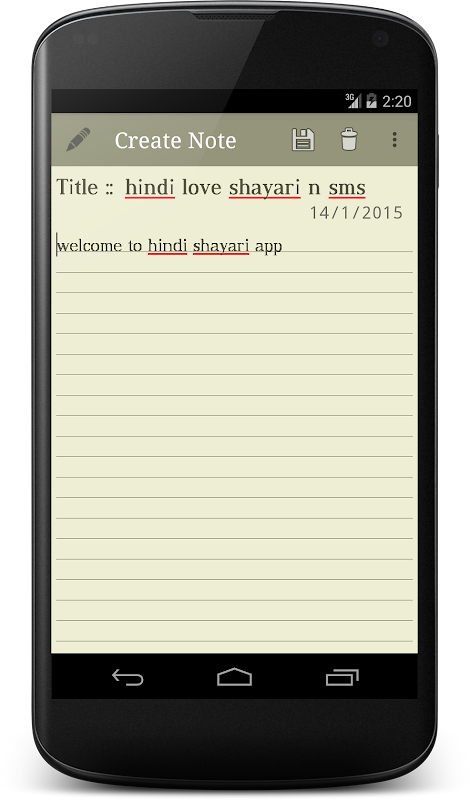 3G 2:20
Create Note
Title :: hindi love shayari n sms
14/1/2015
welcome to hindi shayari app